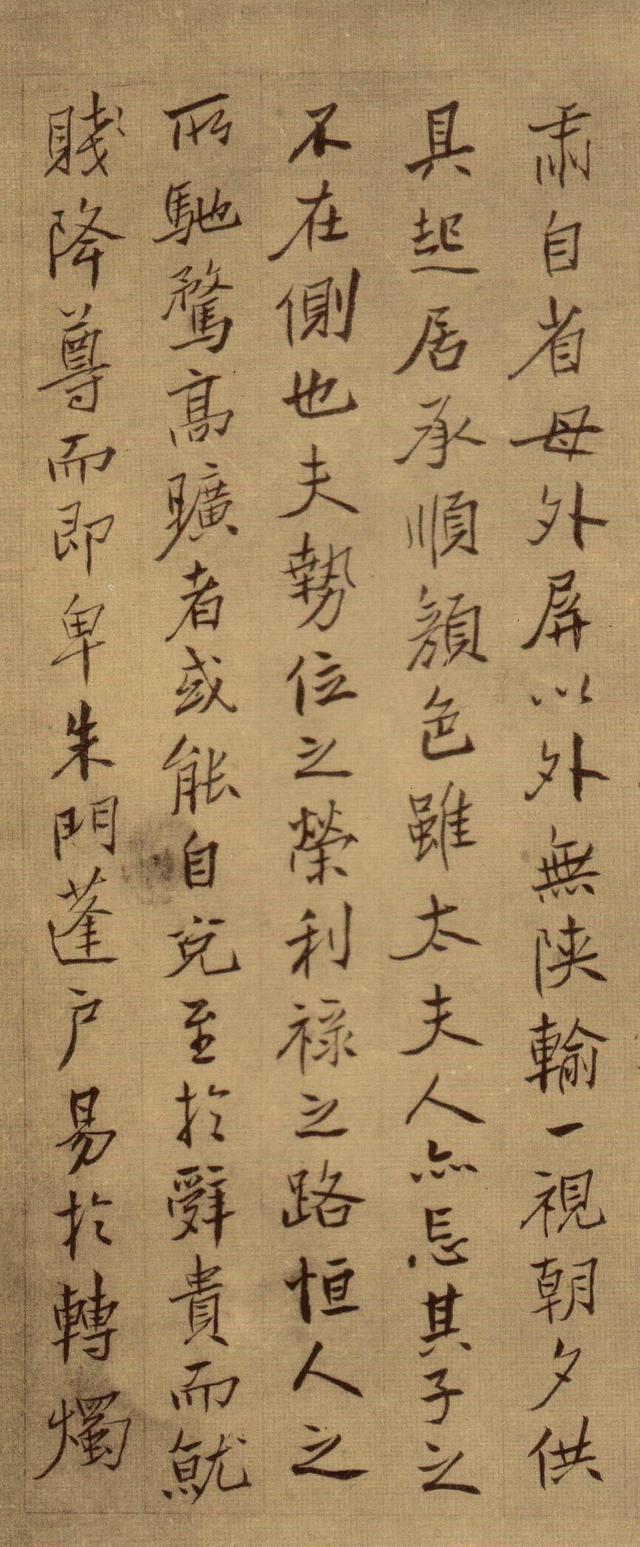 肅自省母外屏以外無陝輸一視朝夕供
具起居承順顏色雖太夫人亦忘其子之
不在側也夫勢位之榮利祿之路恒人之
所馳騖高曠者或能自免至於辭貴而就
賤降尊而即卑朱門蓬戶易於轉燭